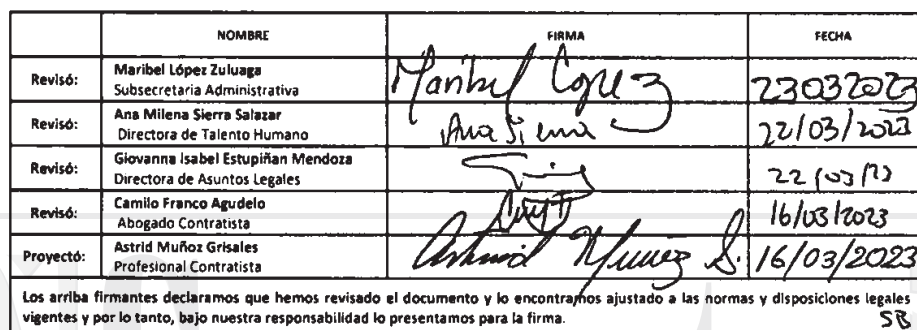 NOMBRE FIRMA FECHA
Revisó: Maribel López Zuluaga
Subsecretaria Administrativa
Maribel López 23032023
Revisó: Ana Milena Sierra Salazar
Directora de Talento Humano
Ana Sierra 22/03/2023
Revisó: Giovanna Isabel Estupiñan Mendoza
Directora de Asuntos Legales
22/03/23
Revisó: Camilo Franco Agudelo
Abogado Contratista
16/03/2023
Proyectó: Astrid Muñoz Grisales
Profesional Contratista
Astrid Muñoz G. 16/03/2023
Los arriba firmantes declaramos que hemos revisado el documento y lo encontramos ajustado a las normas y disposiciones legales
vigentes y por lo tanto, bajo nuestra responsabilidad lo presentamos para la firma.
SR